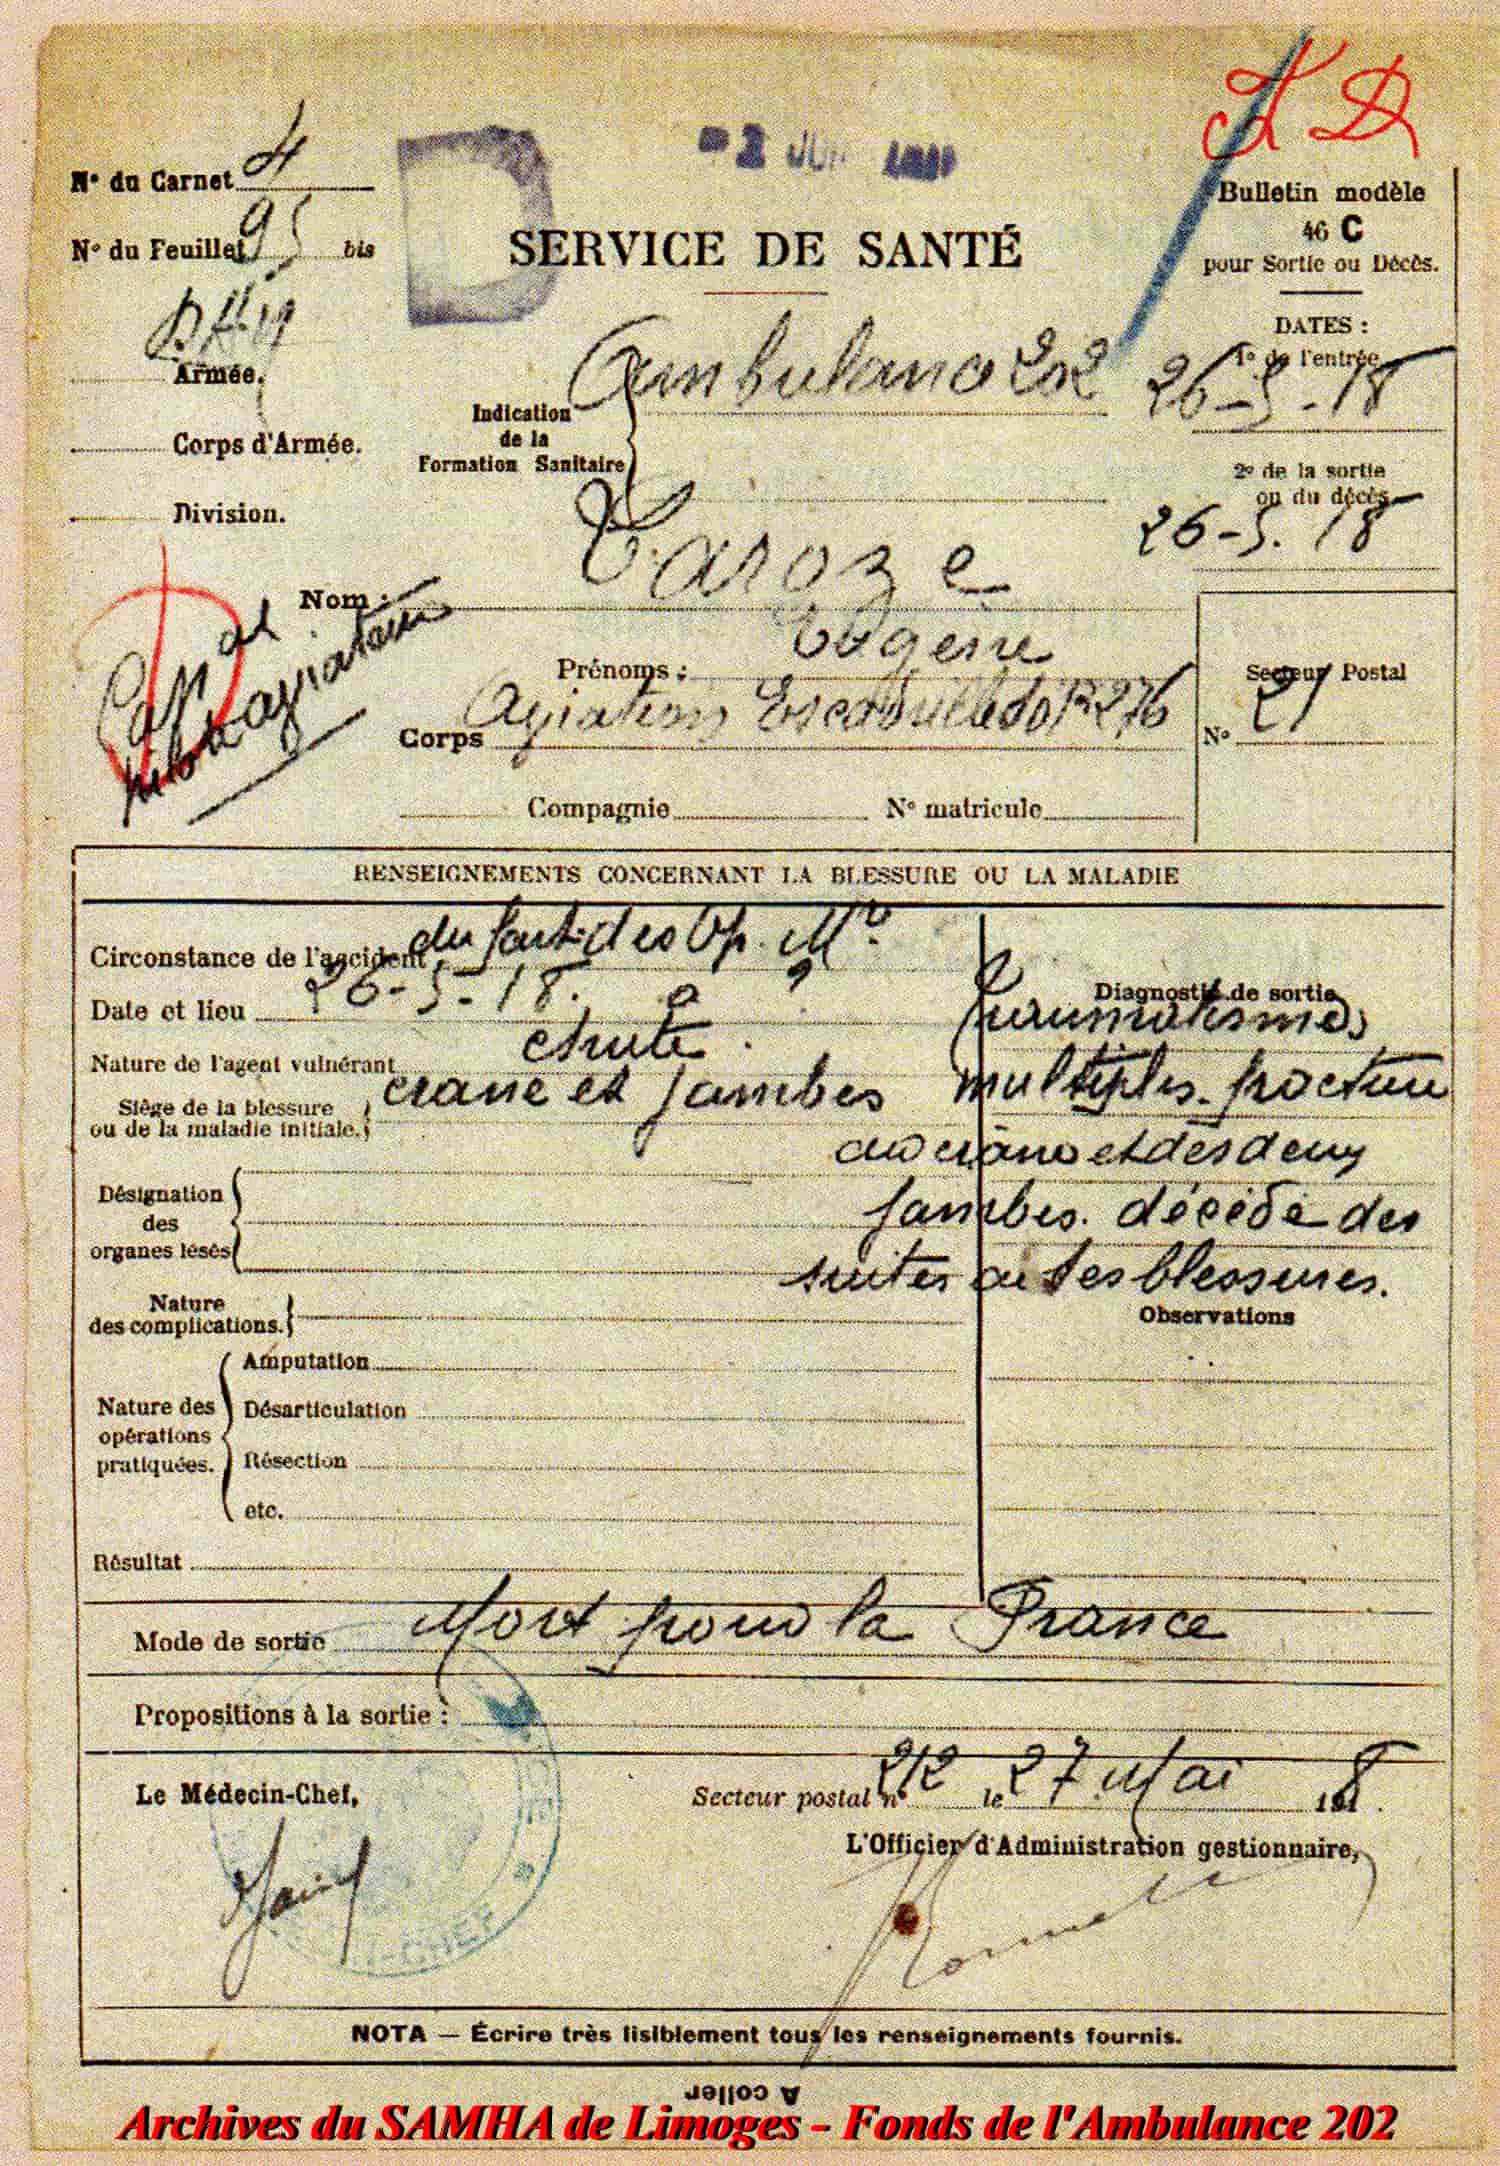 N° du Carnet 4
N° du Feuillet 95 bis
Armée.
Corps d'Armée.
Division.
D
2 JUN
SERVICE DE SANTÉ
D
Bulletin modèle
46 C
pour Sortie ou Décès.
DATES :
1° de l'entrée
26-5-18
2° de la sortie
ou du décès
26-5.18
Indication
de la
Formation Sanitaire
Ambulance 202
Nom : Varoze
Prénoms : Eugène
Corps Aviation Escadrille 276
Cal
pilote aviateur
Secteur Postal
N° 21
Compagnie N° matricule
RENSEIGNEMENTS CONCERNANT LA BLESSURE OU LA MALADIE
Circonstance de l'accident du fait des Op. Mres
Date et lieu 26-5-18. a ?
Nature de l'agent vulnérant chute.
Siège de la blessure
ou de la maladie initiale.
crane et jambes
Désignation
des
organes lésés
Nature
des complications.
Nature des
opérations
pratiquées.
Amputation
Désarticulation
Résection
etc.
Résultat
Diagnostic de sortie
Traumatismes
multiples. fracture
du crâne et des deux
jambes. décédé des
suites de ses blessures.
Observations
Mode de sortie Mort pour la France
Propositions à la sortie :
Le Médecin-Chef,
N-CHEF
Secteur postal n° 212 le 27 Mai 1918.
L'Officier d'Administration gestionnaire,
NOTA — Écrire très lisiblement tous les renseignements fournis.
A coller
Archives du SAMHA de Limoges - Fonds de l'Ambulance 202